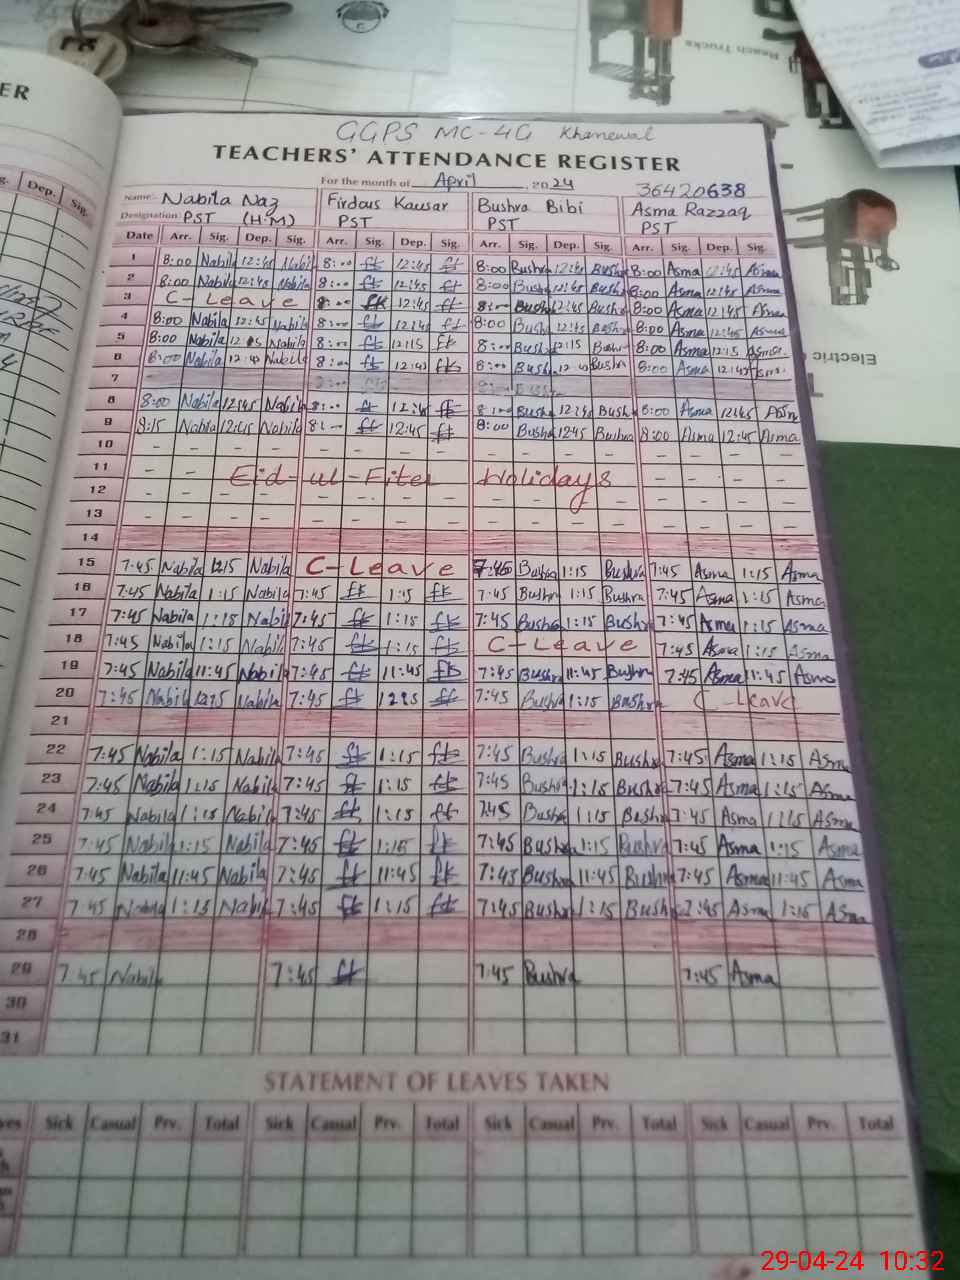 Reach Trucks
ER
GGPS MC-4G Khanewal
TEACHERS' ATTENDANCE REGISTER
For the month of April, 2024
36420638
Name: Nabila Naz Firdous Kausar Bushra Bibi Asma Razzaq
Designation: PST (H.M) PST PST PST
Dep. Sig.
Date Arr. Sig. Dep. Sig. Arr. Sig. Dep. Sig. Arr. Sig. Dep. Sig. Arr. Sig. Dep. Sig.
1 8:00 Nabila 12:45 Nabil 8:00 fk 12:45 fk 8:00 Bushra 12:45 Bushra 8:00 Asma 12:45 Asma
2 8:00 Nabila 12:45 Nabila 8:00 fk 12:45 fk 8:00 Bushra 12:45 Bushra 8:00 Asma 12:45 Asma
3 C-Leave 8:00 fk 12:45 fk 8:00 Bushra 12:45 Bushra 8:00 Asma 12:45 Asma
4 8:00 Nabila 12:45 Nabila 8:00 fk 12:45 fk 8:00 Bushra 12:45 Bushra 8:00 Asma 12:45 Asma
5 8:00 Nabila Nabila 8:00 fk 12:15 fk 8:00 Bushra 12:15 Bushra 8:00 Asma 12:15 Asma
6 8:00 Nabila Nabila 8:00 fk fk 8:00 Bush Bushra 8:00 Asma Asma
7
8 8:00 Nabila 12:45 Nabila 8:00 fk 12:45 fk Bushra 12:45 Bush 8:00 Asma 12:45 Asm
9 8:15 Nabila 12:45 Nabila fk 12:45 fk 8:00 Bushra 12:45 Bushra 8:00 Asma 12:45 Asma
10 – – – – – – – – – – – – – – – –
11 Eid-ul-Fiter Holidays
12 – – – – – – – – – – – – – – – –
13 – – – – – – – – – – – – – – – –
14
15 7:45 Nabila 1215 Nabila C-Leave 7:45 Bushra 1:15 Bushra 7:45 Asma 1:15 Asma
16 7:45 Nabila 1:15 Nabila 7:45 fk 1:15 fk 7:45 Bushra 1:15 Bushra 7:45 Asma 1:15 Asma
17 7:45 Nabila 1:15 Nabila 7:45 fk 1:15 fk 7:45 Bushra 1:15 Bushra 7:45 Asma 1:15 Asma
18 7:45 Nabila 1:15 Nabila 7:45 fk 1:15 fk C-Leave 7:45 Asma 1:15 Asma
19 7:45 Nabila 11:45 Nabila 7:45 fk 11:45 fk 7:45 Bushra 11:45 Bushra 7:45 Asma 11:45 Asma
20 7:45 Nabila Nabila 7:45 fk fk 7:45 Bushra 1:15 Bushra C-Leave
21
22 7:45 Nabila 1:15 Nabila 7:45 fk 1:15 fk 7:45 Bushra 1:15 Bushra 7:45 Asma 1:15 Asma
23 7:45 Nabila 1:15 Nabila 7:45 fk 1:15 fk 7:45 Bushra 1:15 Bushra 7:45 Asma 1:15 Asma
24 7:45 Nabila 1:15 Nabila 7:45 fk 1:15 fk 7:45 Bushra 1:15 Bushra 7:45 Asma 1:15 Asma
25 7:45 Nabila 1:15 Nabila 7:45 fk 1:15 fk 7:45 Bushra 1:15 Bushra 7:45 Asma 1:15 Asma
26 7:45 Nabila 11:45 Nabila 7:45 fk 11:45 fk 7:45 Bushra 11:45 Bushra 7:45 Asma 11:45 Asma
27 7:45 Nabila 1:15 Nabila 7:45 fk 1:15 fk 7:45 Bushra 1:15 Bushra 7:45 Asma 1:15 Asma
28
29 7:45 Nabila 7:45 fk 7:45 Bushra 7:45 Asma
30
31
Electric
STATEMENT OF LEAVES TAKEN
Sick Casual Prv. Total Sick Casual Prv. Total Sick Casual Prv. Total Sick Casual Prv. Total
29-04-24 10:32